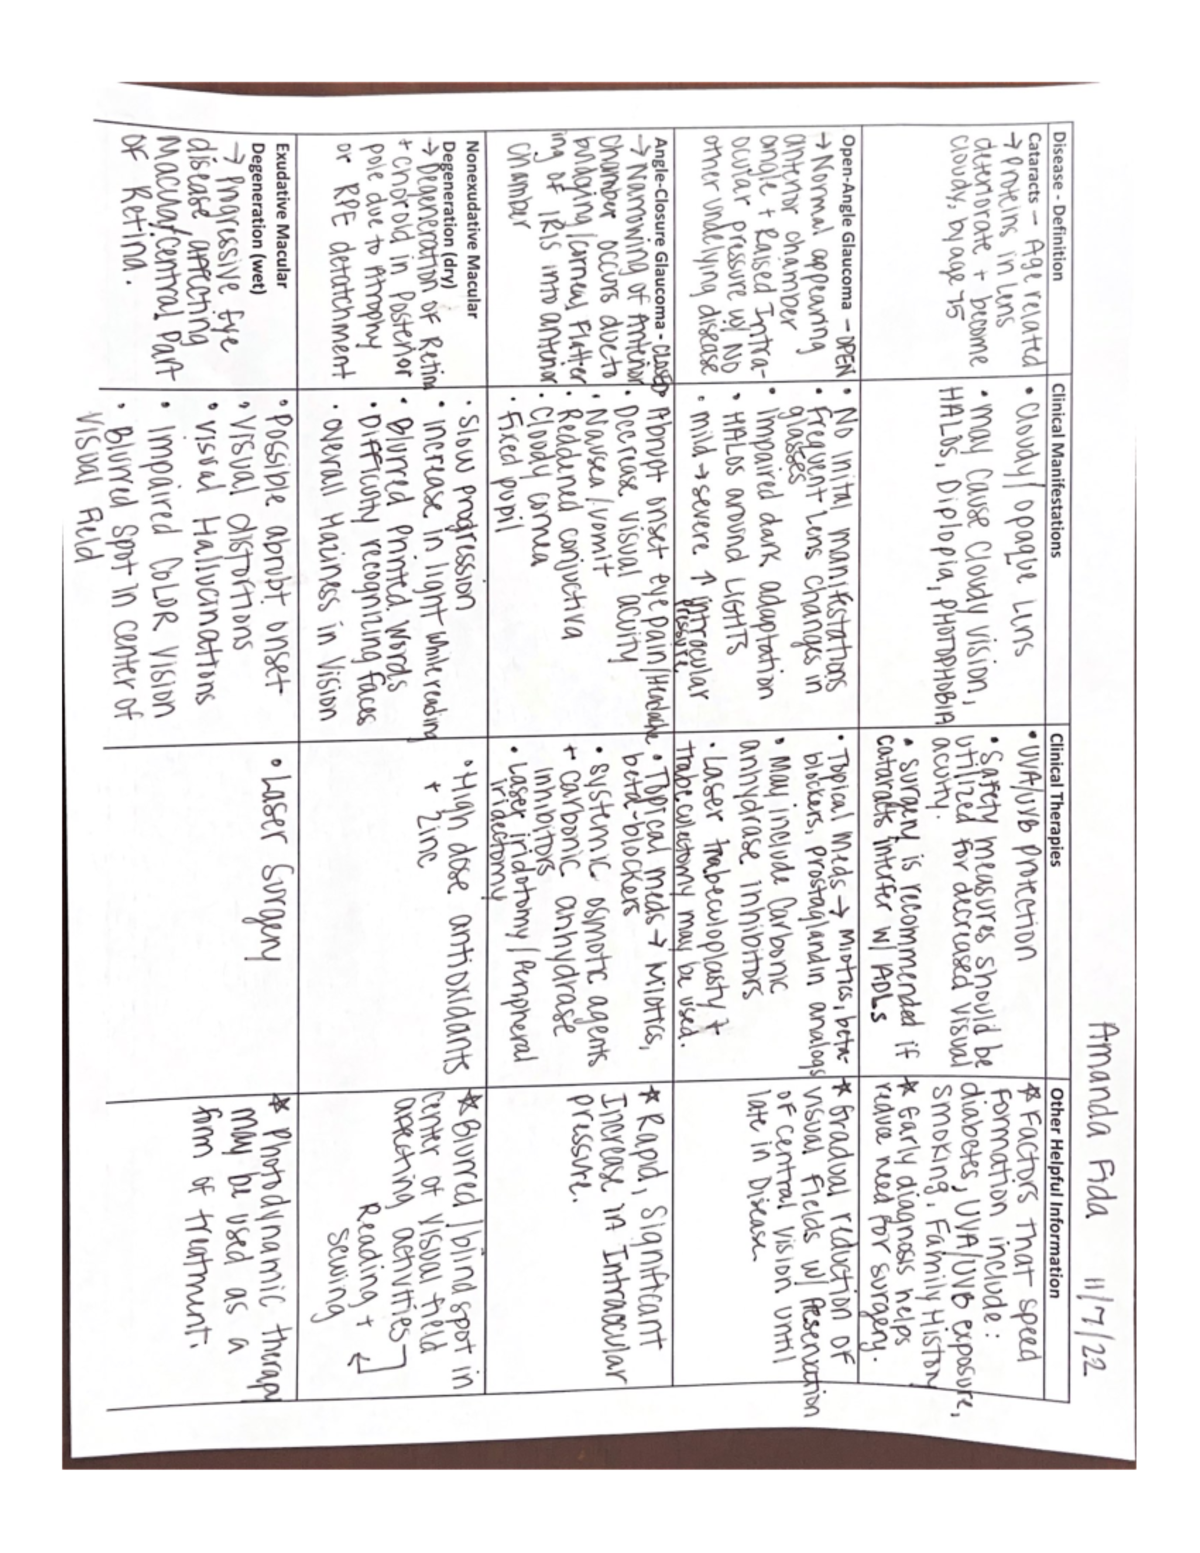 Amanda Fida 11/7/22
Disease - Definition
Clinical Manifestations
Clinical Therapies
Other Helpful Information
Cataracts – Age related
→ Proteins in Lens
deteriorate + become
cloudy, by age 75
• Cloudy/opaque Lens
• may Cause Cloudy vision,
HALOs, Diplopia, PHOTOPHOBIA
• UVA/UVB Protection
• Safety measures should be
utilized for decreased visual
acuity.
• Surgery is recommended if
cataracts interfer w/ ADLs
☆ Factors that speed
formation include:
diabetes, UVA/UVB exposure,
Smoking, Family History
☆ Early diagnosis helps
reduce need for surgery.
Open-Angle Glaucoma – OPEN
→ Normal appearing
anterior chamber
angle + Raised Intra-
ocular pressure w/ NO
other underlying disease
• No Inital manifestations
• Frequent Lens changes in
glasses
• Impaired dark adaptation
• HALOs around LIGHTS
• mild → severe ↑ introcular
pressure
• Topical Meds → Miotics, beta-
blockers, prostaglandin analogs
• May include Carbonic
anhydrase inhibitors
• Laser trabeculoplasty +
trabeculectomy may be used.
☆ Gradual reduction of
visual fields w/ Preservation
of central vision until
late in Disease
Angle-Closure Glaucoma - Closed
→ Narrowing of Anterior
chamber occurs due to
bulging/corneal flatter
ing of IRIS into anterior
chamber
• Abrupt onset eye pain/Headache
• Decrease visual acuity
• Nausea/vomit
• Reddened conjuctiva
• Cloudy cornea
• Fixed pupil
• Topical meds → Miotics,
beta-blockers
• systemic osmotic agents
+ carbonic anhydrase
inhibitors
• Laser iridotomy/Peripheral
iridectomy
☆ Rapid, Significant
Increase in Intraocular
pressure.
Nonexudative Macular
Degeneration (dry)
→ Degeneration of Retina
+ choroid in Posterior
pole due to Atrophy
or RPE detatchment
• Slow progression
• increase in light while reading
• Blurred Printed Words
• Difficulty recognizing faces
• overall Haziness in Vision
• High dose antioxidants
+ Zinc
☆ Blurred/blind spot in
center of visual field
affecting activities
Reading +
Sewing
Exudative Macular
Degeneration (wet)
→ Progressive Eye
disease affecting
Macula/Central Part
of Retina.
• Possible abrupt onset
• Visual distortions
• Visual Hallucinations
• Impaired COLOR Vision
• Blurred Spot in center of
Visual Field
• Laser Surgery
☆ Photodynamic therapy
may be used as a
form of treatment.